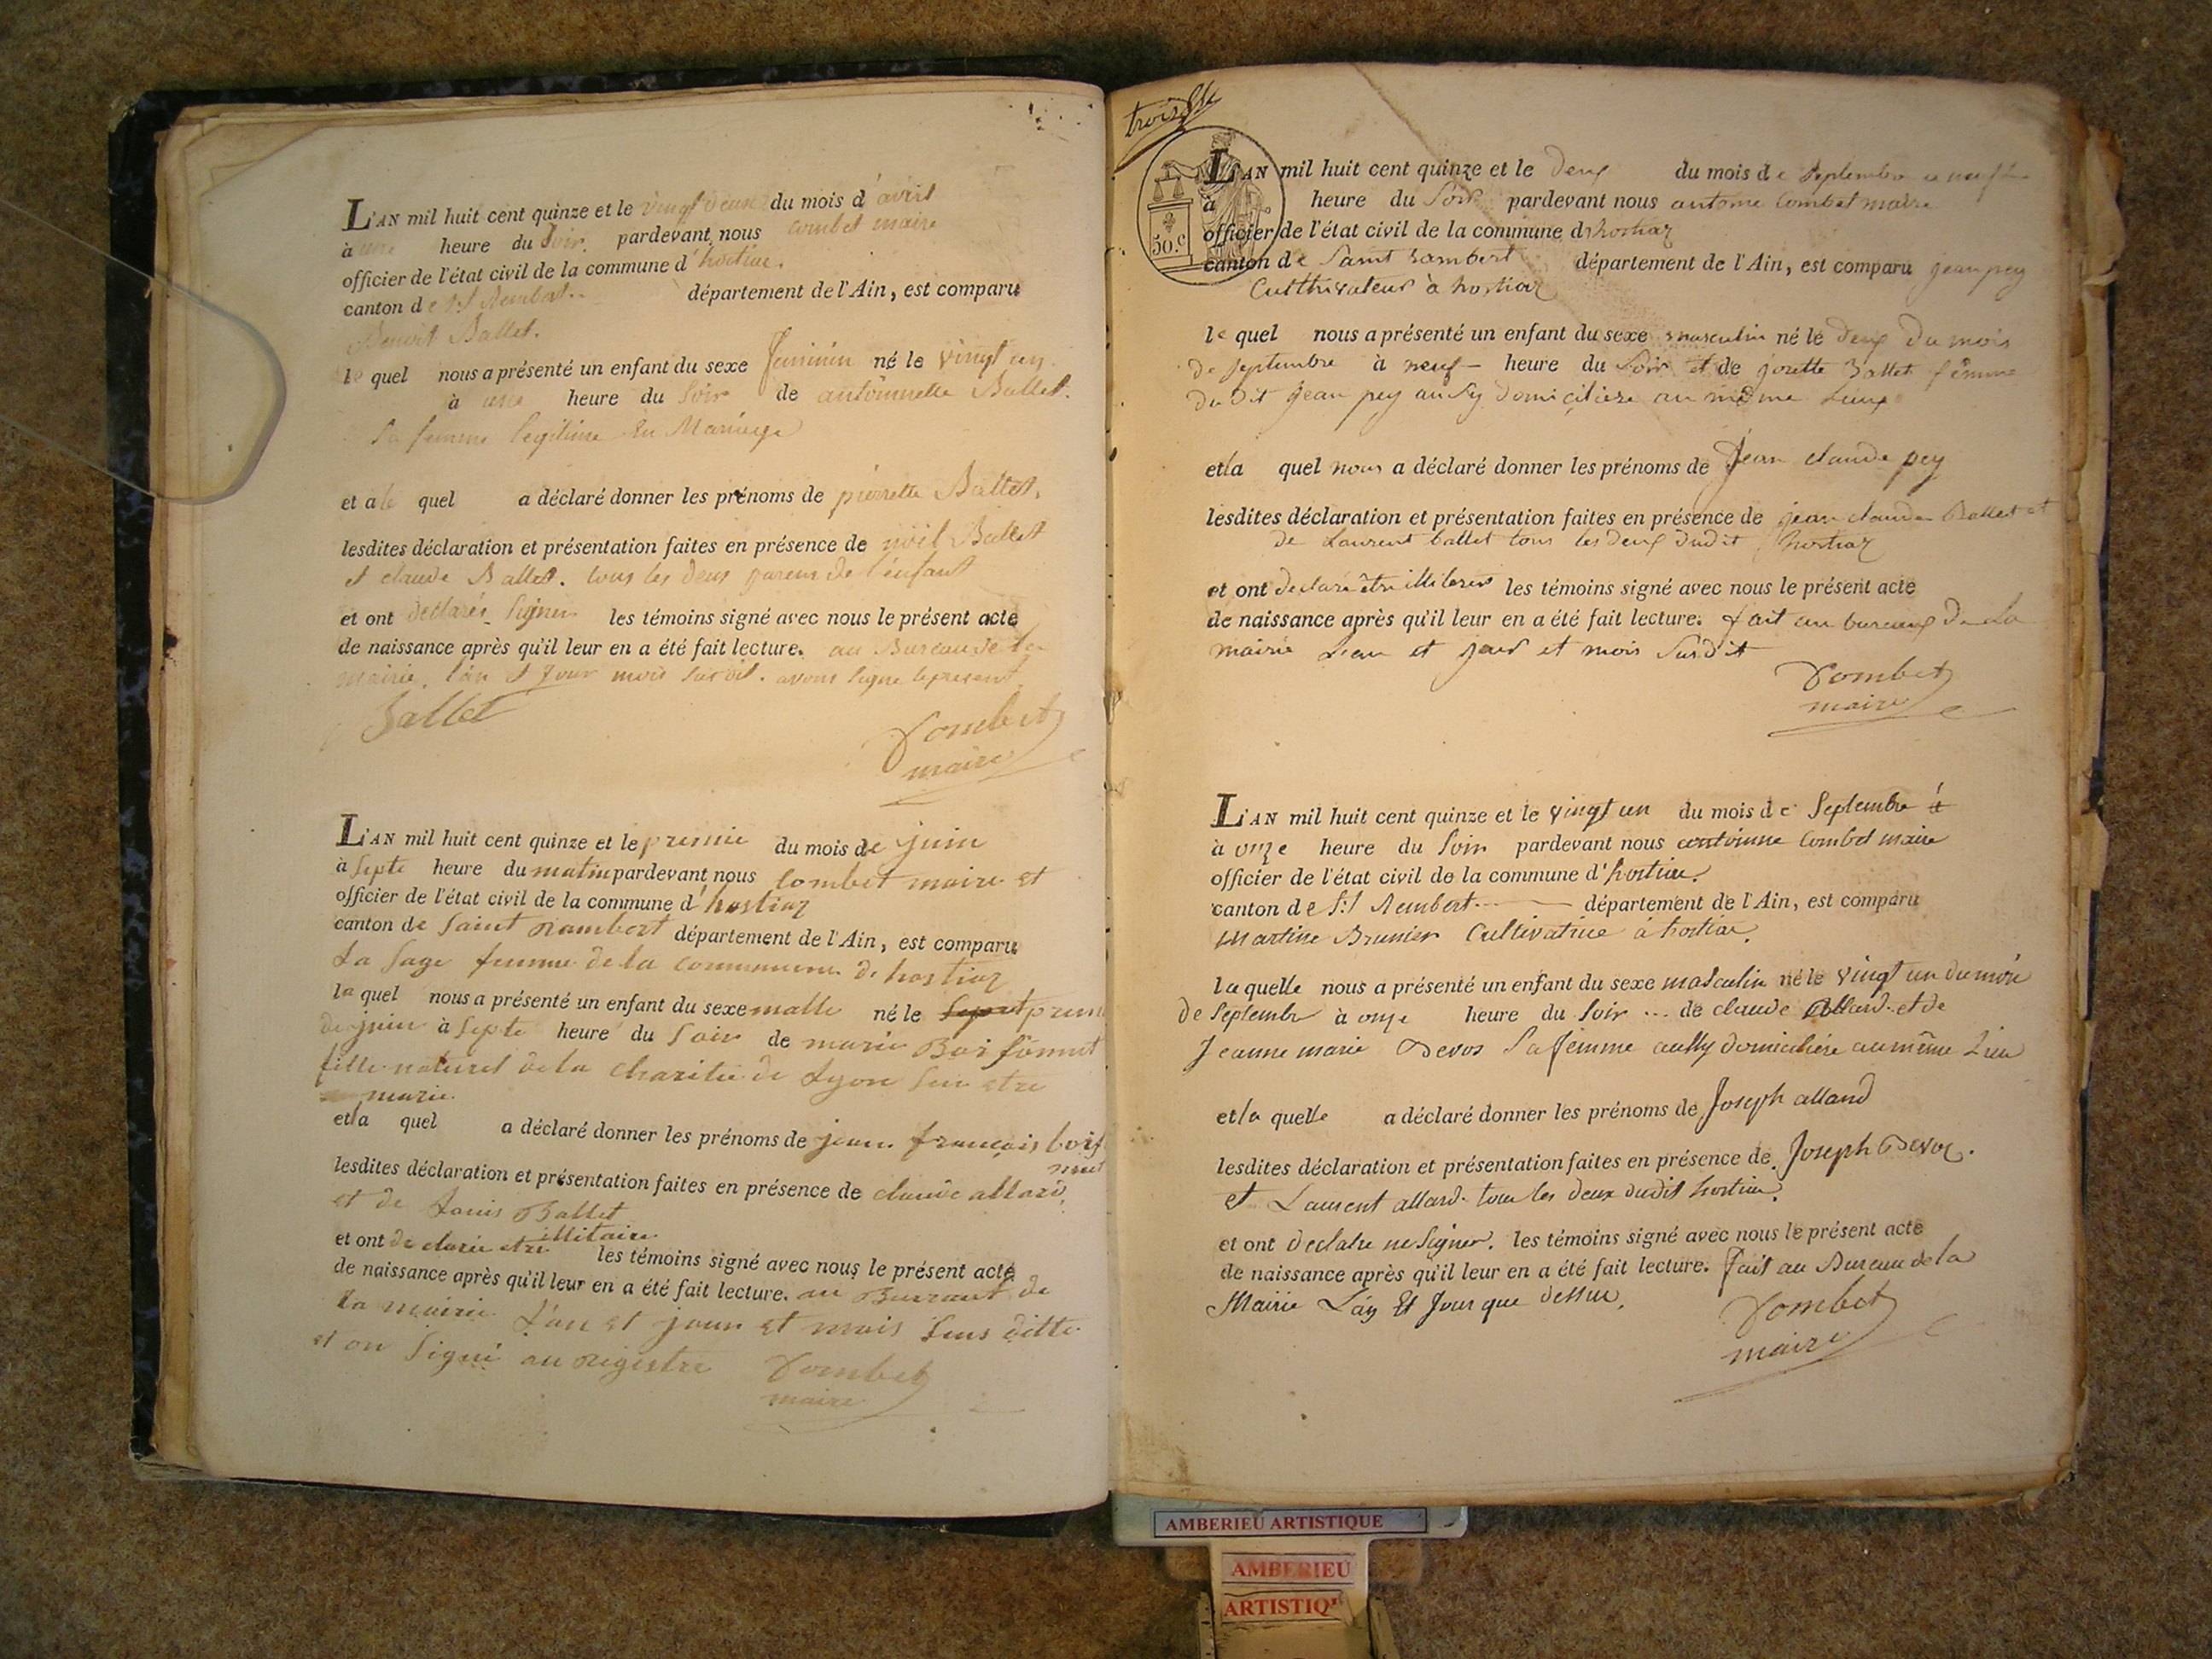 L'AN mil huit cent quinze et le vingt deux du mois d'avril
à une heure du soir pardevant nous combet maire
officier de l'état civil de la commune d'hostiaz
canton de St Rembert département de l'Ain, est comparu
Benoit Ballet.
le quel nous a présenté un enfant du sexe feminin né le vingt un
à une heure du soir de antoinnette Ballet.
sa femme legitime en Mariage
et a le quel a déclaré donner les prénoms de pierrette Ballet.
lesdites déclaration et présentation faites en présence de noël Ballet
et claude Ballet. tous les deux parens de l'enfant
et ont declarés signer les témoins signé avec nous le présent acte
de naissance après qu'il leur en a été fait lecture. au Bureau de la
mairie. l'an et jour mois susdit. avons signe le present
Ballet
Combet
maire
L'AN mil huit cent quinze et le premie du mois de juin
à septe heure du matin pardevant nous combet maire et
officier de l'état civil de la commune d'hostiaz
canton de saint rambert département de l'Ain, est comparu
La sage femme de la commune de hostiaz
la quel nous a présenté un enfant du sexe malle né le prem
de juin à septe heure du soir de marie
fille naturel de la charitée de Lyon sen etre
marie.
et la quel a déclaré donner les prénoms de jean françois
lesdites déclaration et présentation faites en présence de claude allard
et de Louis Ballet
et ont de clarée etre illitaire les témoins signé avec nous le présent acte
de naissance après qu'il leur en a été fait lecture. au Burraut de
la mairie L'an et jour et mois sus ditte
et on signé au registre Combet
maire
50.c
L'AN mil huit cent quinze et le deux du mois de Septembre
à heure du soir pardevant nous antome Combet maire
officier de l'état civil de la commune d hostiaz
canton de Saint Rambert département de l'Ain, est comparu jean pey
Culthivateur à hostiaz
le quel nous a présenté un enfant du sexe masculin né le deux du mois
de septembre à neuf heure du soir et de josette Ballet fémme
du dit jean pey aussy domicilière au mème Lieux
et la quel nous a déclaré donner les prénoms de Jean claude pey
lesdites déclaration et présentation faites en présence de jean claude Ballet et
de Laurent ballet tous les deux dudit hostiaz
et ont declaré être illiterés les témoins signé avec nous le présent acte
de naissance après qu'il leur en a été fait lecture. fait au bureaux de La
mairie L'an et jour et mois susdit
Combet
maire
L'AN mil huit cent quinze et le vingt un du mois de Septembre
à onze heure du soir pardevant nous antoinne Combet maire
officier de l'état civil de la commune d'hostiaz.
canton de St Rembert département de l'Ain, est comparu
Martine Brunier Cultivatrice à hostiaz.
la quelle nous a présenté un enfant du sexe masculin né le vingt un du mois
de Septembre à onze heure du soir ... de claude allard et de
Jeanne marie Devos sa femme aussy domicilière au même Lieu
et la quelle a déclaré donner les prénoms de Joseph allard
lesdites déclaration et présentation faites en présence de Joseph Devos.
et Laurent allard. tous les deux dudit hostiaz.
et ont declaré ne signer. les témoins signé avec nous le présent acte
de naissance après qu'il leur en a été fait lecture. fait au Bureau de la
Mairie L'an Et Jour que dessus.
Combet
maire
AMBERIEU ARTISTIQUE
AMBERIEU
ARTISTIQ